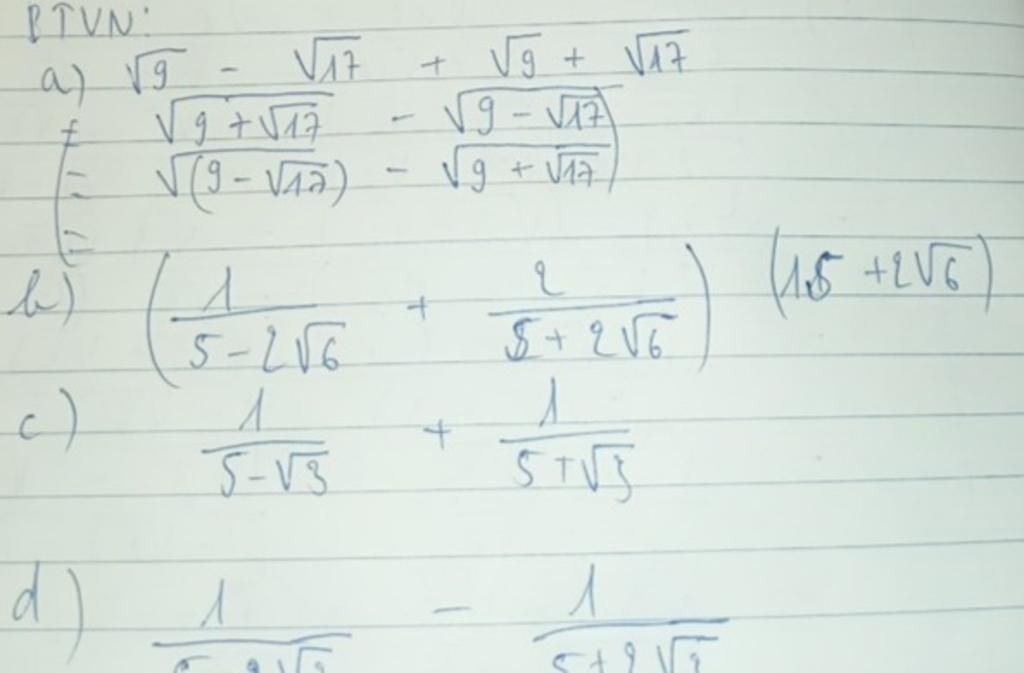 BTVN:
a) √9 - √17 + √9 + √17
= √(9 + √17) - √(9 - √17)
= √(9 - √17) - √(9 + √17)
=
b) (1/(5 - 2√6) + 2/(5 + 2√6)) (15 + 2√6)
c) 1/(5 - √3) + 1/(5 + √3)
d) 1/(5 - 2√3) - 1/(5 + 2√3)